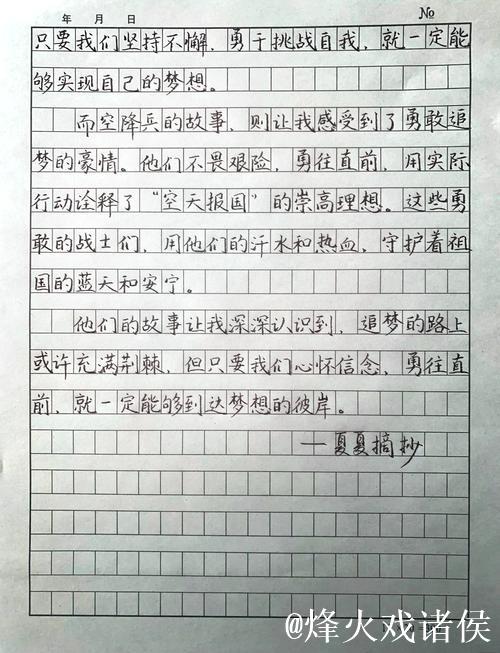 年 月 日 №
只要我们坚持不懈，勇于挑战自我，就一定能
够实现自己的梦想。
而空降兵的故事，则让我感受到了勇敢追
梦的豪情。他们不畏艰险，勇往直前，用实际
行动诠释了“空天报国”的崇高理想。这些勇
敢的战士们，用他们的汗水和热血，守护着祖
国的蓝天和安宁。
他们的故事让我深深认识到，追梦的路上
或许充满荆棘，但只要我们心怀信念，勇往直
前，就一定能够到达梦想的彼岸。
——夏夏摘抄
@烽火戏诸侯